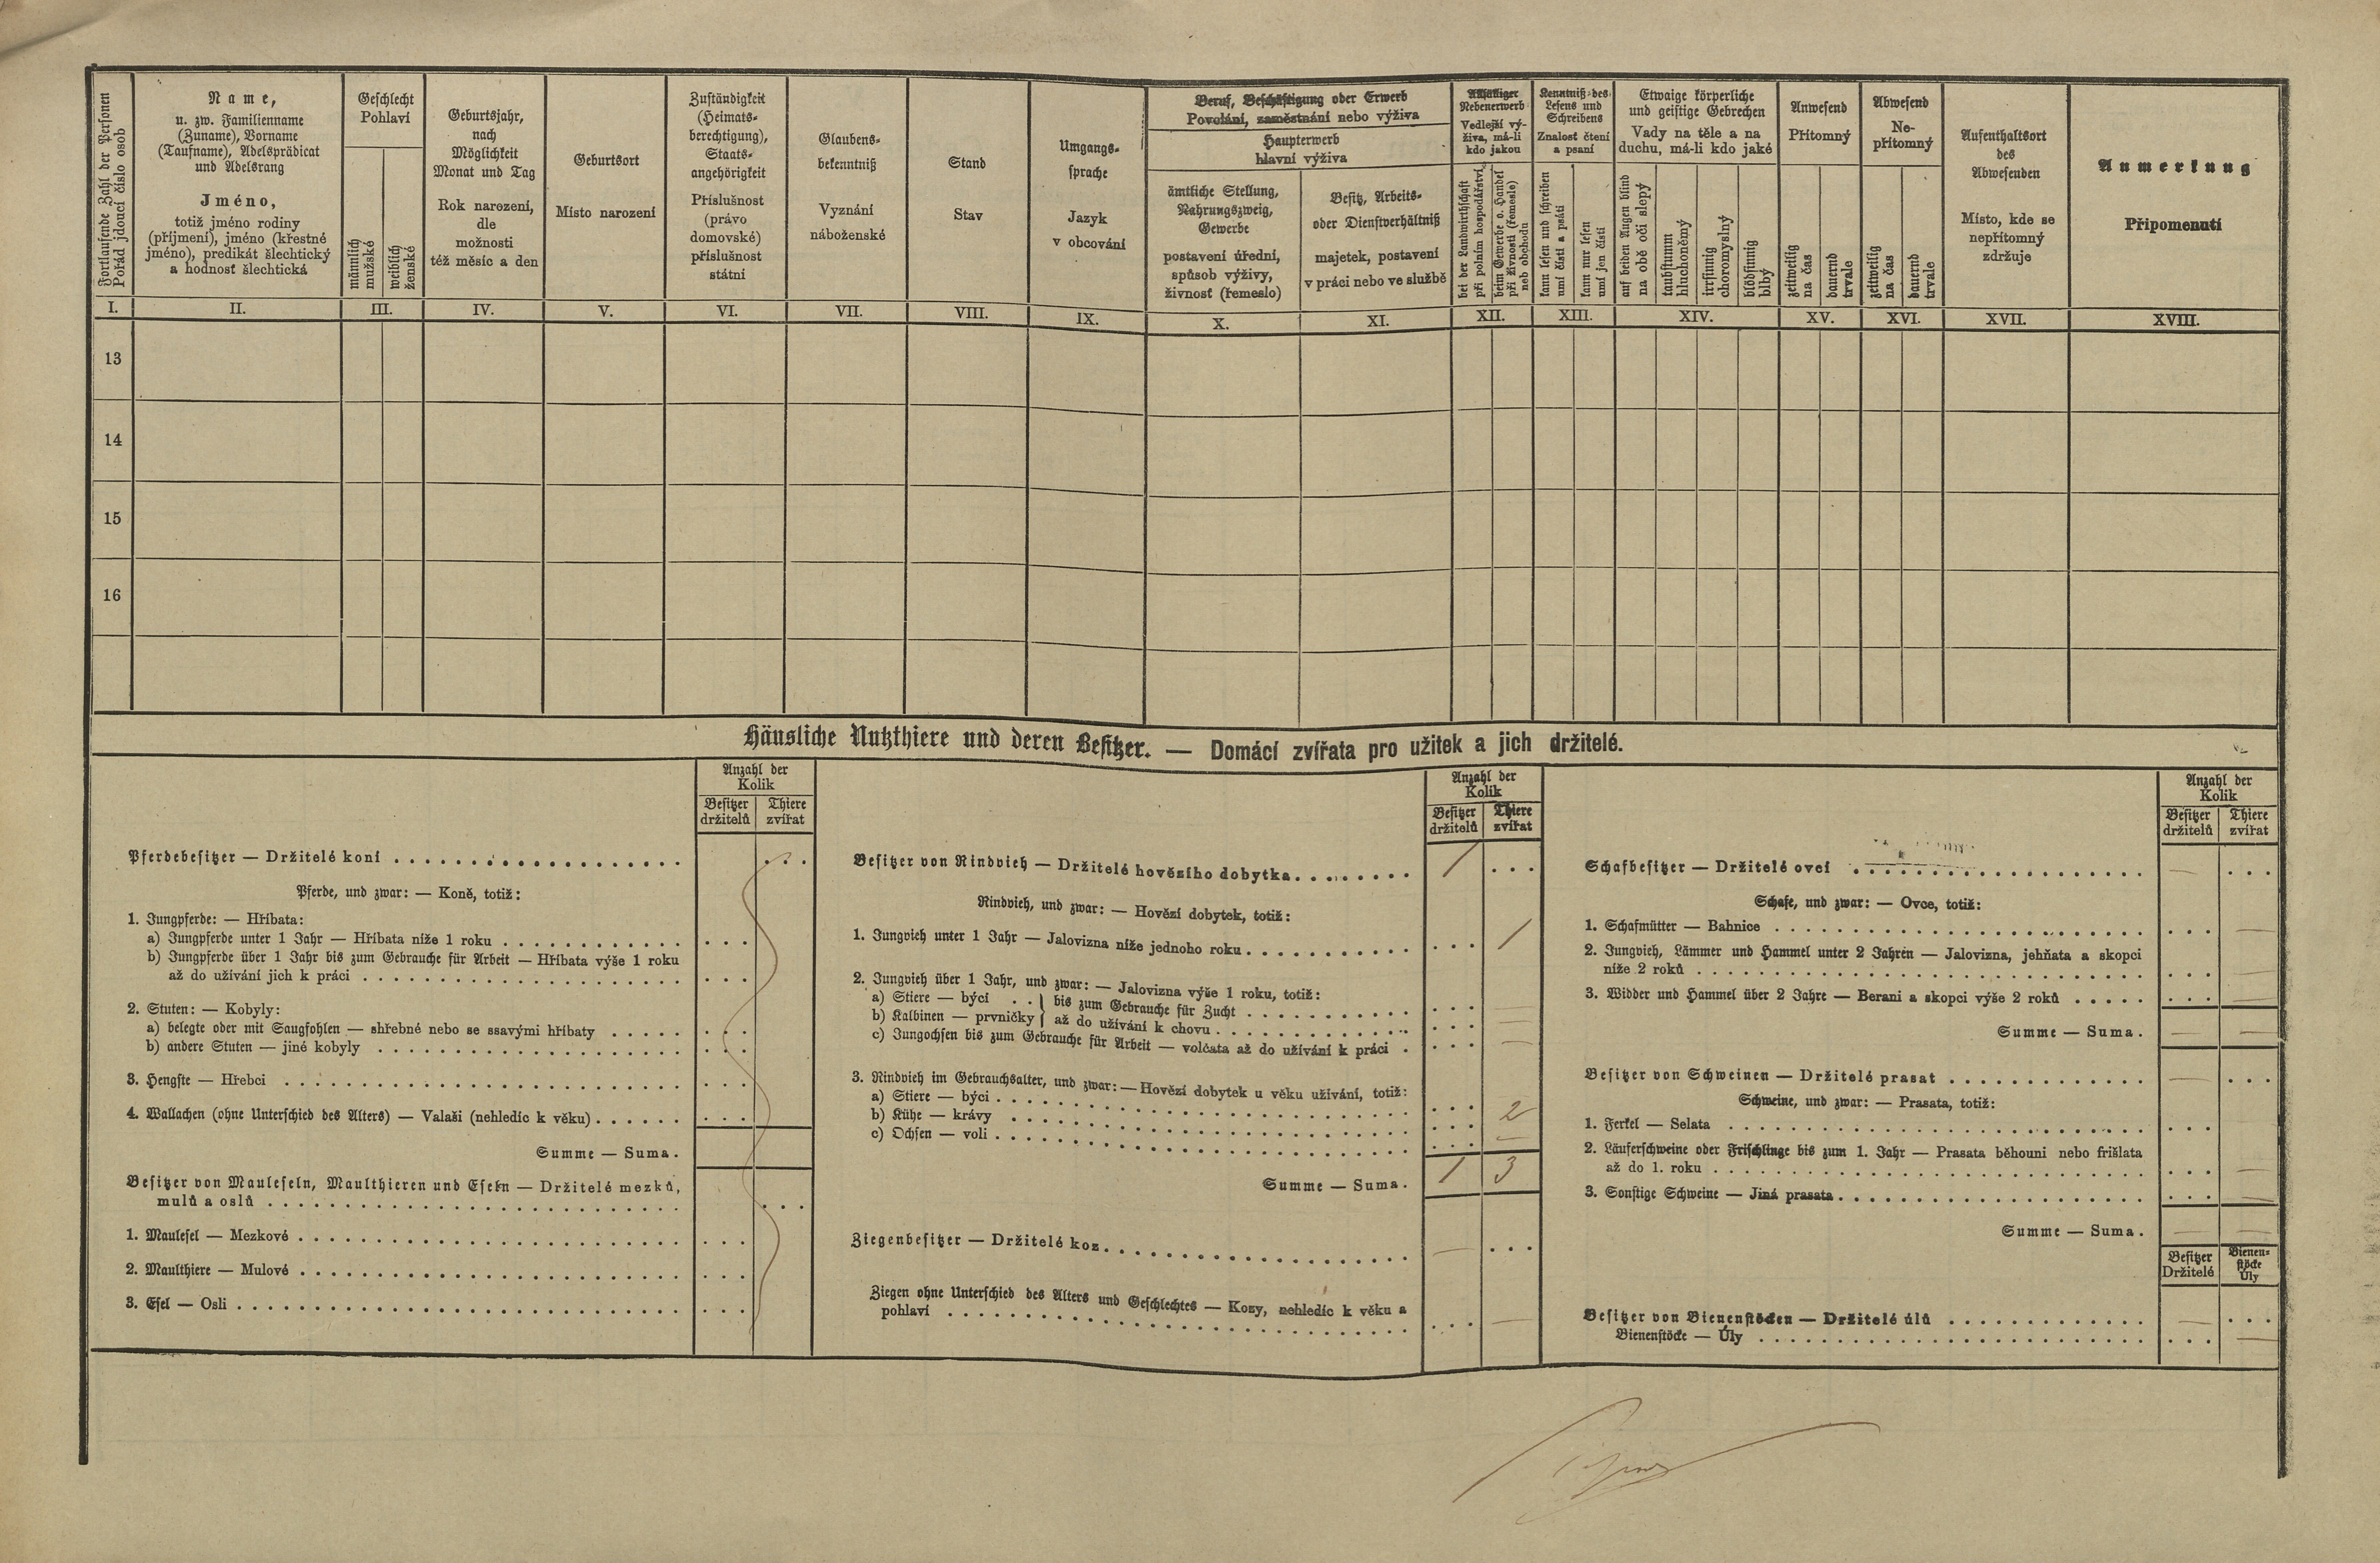 Fortlaufende Zahl der Personen
Pořád jdoucí číslo osob
Name,
u. zw. Familienname
(Zuname), Vorname
(Taufname), Adelsprädicat
und Adelsrang
Jméno,
totiž jméno rodiny
(příjmení), jméno (křestné
jméno), predikát šlechtický
a hodnosť šlechtická
Geschlecht
Pohlaví
männlich
mužské
weiblich
ženské
Geburtsjahr,
nach
Möglichkeit
Monat und Tag
Rok narození,
dle
možnosti
též měsíc a den
Geburtsort
Místo narození
Zuständigkeit
(Heimats-
berechtigung),
Staats-
angehörigkeit
Příslušnost
(právo
domovské)
příslušnost
státní
Glaubens-
bekenntniß
Vyznání
náboženské
Stand
Stav
Umgangs-
sprache
Jazyk
v obcování
Beruf, Beschäftigung oder Erwerb
Povolání, zaměstnání nebo výživa
Haupterwerb
hlavní výživa
ämtliche Stellung,
Nahrungszweig,
Gewerbe
postavení úřední,
spůsob výživy,
živnosť (řemeslo)
Besitz, Arbeits-
oder Dienstverhältniß
majetek, postavení
v práci nebo ve službě
Allfälliger
Nebenerwerb
Vedlejší vý-
živa, má-li
kdo jakou
bei der Landwirthschaft
při polním hospodářství
beim Gewerbe o. Handel
při živnosti (řemesle)
neb obchodu
Kenntniß des
Lesens und
Schreibens
Znalosť čtení
a psaní
kann lesen und schreiben
umí čísti a psáti
kann nur lesen
umí jen čísti
Etwaige körperliche
und geistige Gebrechen
Vady na těle a na
duchu, má-li kdo jaké
auf beiden Augen blind
na obě oči slepý
taubstumm
hluchoněmý
irrsinnig
choromyslný
blödsinnig
blbý
Anwesend
Přítomný
zeitweilig
na čas
dauernd
trvale
Abwesend
Ne-
přítomný
zeitweilig
na čas
dauernd
trvale
Aufenthaltsort
des
Abwesenden
Místo, kde se
nepřítomný
zdržuje
Anmerkung
Připomenutí
I. II. III. IV. V. VI. VII. VIII. IX. X. XI. XII. XIII. XIV. XV. XVI. XVII. XVIII.
13
14
15
16
Häusliche Nutzthiere und deren Besitzer. — Domácí zvířata pro užitek a jich držitelé.
Anzahl der
Kolik
Besitzer
držitelů
Thiere
zvířat
Pferdebesitzer — Držitelé koní
Pferde, und zwar: — Koně, totiž:
1. Jungpferde: — Hříbata:
a) Jungpferde unter 1 Jahr — Hříbata níže 1 roku
b) Jungpferde über 1 Jahr bis zum Gebrauche für Arbeit — Hříbata výše 1 roku
až do užívání jich k práci
2. Stuten: — Kobyly:
a) belegte oder mit Saugfohlen — shřebné nebo se ssavými hříbaty
b) andere Stuten — jiné kobyly
3. Hengste — Hřebci
4. Wallachen (ohne Unterschied des Alters) — Valaši (nehledíc k věku)
Summe — Suma.
Besitzer von Mauleseln, Maulthieren und Eseln — Držitelé mezků,
mulů a oslů
1. Maulesel — Mezkové
2. Maulthiere — Mulové
3. Esel — Osli
Anzahl der
Kolik
Besitzer
držitelů
Thiere
zvířat
Besitzer von Rindvieh — Držitelé hovězího dobytka 1
Rindvieh, und zwar: — Hovězí dobytek, totiž:
1. Jungvieh unter 1 Jahr — Jalovizna níže jednoho roku 1
2. Jungvieh über 1 Jahr, und zwar: — Jalovizna výše 1 roku, totiž:
a) Stiere — býci } bis zum Gebrauche für Zucht
b) Kalbinen — prvničky } až do užívání k chovu
c) Jungochsen bis zum Gebrauche für Arbeit — volčata až do užívání k práci —
3. Rindvieh im Gebrauchsalter, und zwar: — Hovězí dobytek u věku užívání, totiž:
a) Stiere — býci
b) Kühe — krávy 2
c) Ochsen — voli —
Summe — Suma. 1 3
Ziegenbesitzer — Držitelé koz —
Ziegen ohne Unterschied des Alters und Geschlechtes — Kozy, nehledíc k věku a
pohlaví —
Anzahl der
Kolik
Besitzer
držitelů
Thiere
zvířat
Schafbesitzer — Držitelé ovcí —
Schafe, und zwar: — Ovce, totiž:
1. Schafmütter — Bahnice —
2. Jungvieh, Lämmer und Hammel unter 2 Jahren — Jalovizna, jehňata a skopci
níže 2 roků —
3. Widder und Hammel über 2 Jahre — Berani a skopci výše 2 roků —
Summe — Suma. — —
Besitzer von Schweinen — Držitelé prasat —
Schweine, und zwar: — Prasata, totiž:
1. Ferkel — Selata
2. Läuferschweine oder Frischlinge bis zum 1. Jahr — Prasata běhouni nebo frišlata
až do 1. roku —
3. Sonstige Schweine — Jiná prasata —
Summe — Suma. — —
Besitzer
Držitelé
Bienen-
stöcke
Úly
Besitzer von Bienenstöcken — Držitelé úlů —
Bienenstöcke — Úly —